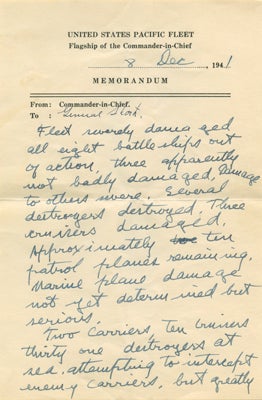 UNITED STATES PACIFIC FLEET
Flagship of the Commander-in-Chief
8 Dec , 1941
MEMORANDUM
From: Commander-in-Chief.
To : General Short.
Fleet severely damaged
all eight battleships out
of action, three apparently
not badly damaged, Damage
to others severe. Several
destroyers destroyed, Three
cruisers damaged.
Approximately ten
patrol planes remaining.
Marine plane damage
not yet determined but
serious.
Two Carriers, Ten cruisers
thirty one destroyers at
sea, attempting to intercept
enemy carriers, but greatly